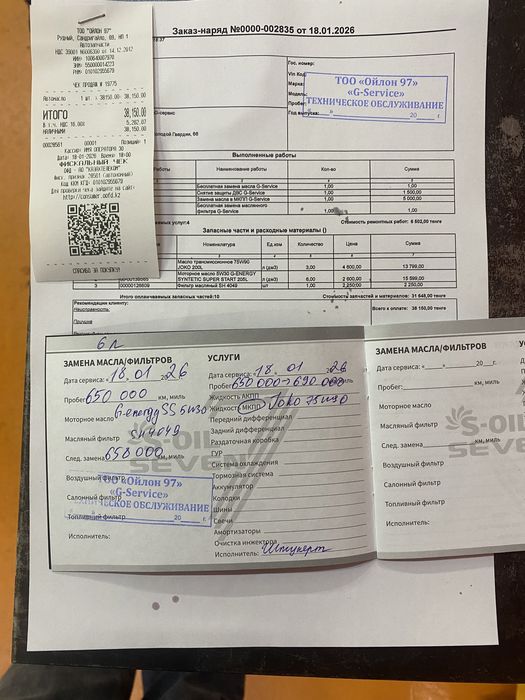 ТОО "ОЙЛОН 97"
Автозапчасти
ЧЕК ПРОДАЖ # 19775
Автомасло 1 шт. x 38150.00= 38,150.00
ИТОГО 38,150.00
В т.ч. НДС 16.00% 5,262.07
НАЛИЧНЫМИ 38,150.00
00001 Позиций: 1
Кассир: ИМЯ ОПЕРАТОРА 30
Дата 18-01-2026 Время 18:00
ФИСКАЛЬНЫЙ ЧЕК
ОФД - АО "КАЗАХТЕЛЕКОМ"
Для проверки чека зайдите на сайт
http://consumer.oofd.kz
СПАСИБО ЗА ПОКУПКУ!
Заказ-наряд №0000-002835 от 18.01.2026
Гос. номер:
Vin Код
Марка:
Модель:
Пробег
Год выпуска:
ТОО «Ойлон 97»
«G-Service»
ТЕХНИЧЕСКОЕ ОБСЛУЖИВАНИЕ
20 г.
Выполненные работы
Наименование работы Кол-во Сумма
Бесплатная замена масла G-Service 1,00 1,00
Снятие защиты ДВС G-Service 1,00 1 500,00
Замена масла в МКПП G-Service 1,00 5 000,00
Бесплатная замена масляного фильтра G-Service 1,00 1,00
Стоимость ремонтных работ: 6 502,00 тенге
Запасные части и расходные материалы ()
Номенклатура Ед.изм Количество Цена Сумма
Масло трансмиссионное 75W90 JOKO 200L л (дм3) 3,00 4 600,00 13 799,00
Моторное масло 5W30 G-ENERGY SYNTETIC SUPER START 205L л (дм3) 6,00 2 600,00 15 599,00
3 00000128609 Фильтр масляный SH 4049 шт 1,00 2 250,00 2 250,00
Итого оплачиваемых запасных частей:10 Стоимость запчастей и материалов: 31 648,00 тенге
Рекомендации клиенту: Всего к оплате: 38 150,00 тенге
Неисправность:
Причина
6 л
ЗАМЕНА МАСЛА/ФИЛЬТРОВ
Дата сервиса: «18» 01 2026
Пробег 650 000 км, миль
Моторное масло G-energy SS 5W30
Масляный фильтр SH4049
След. замена 658 000 км, миль
Воздушный фильтр
Салонный фильтр
Топливный фильтр
Исполнитель:
ТОО «Ойлон 97»
«G-Service»
ТЕХНИЧЕСКОЕ ОБСЛУЖИВАНИЕ
20 г.
УСЛУГИ
Дата сервиса: «18» 01 2026
Пробег 650 000 → 690 000
Жидкость АКПП
Жидкость МКПП Joko 75W90
Передний дифференциал
Задний дифференциал
Раздаточная коробка
ГУР
Система охлаждения
Тормозная система
Аккумулятор
Колодки
Шины
Свечи
Амортизаторы
Очистка инжектора
Исполнитель: Штуперт
S-OIL
SEVEN
ЗАМЕНА МАСЛА/ФИЛЬТРОВ
Дата сервиса: « » 20 г.
Пробег: км, миль
Моторное масло
Масляный фильтр
След. замена км, миль
Воздушный фильтр
Салонный фильтр
Топливный фильтр
Исполнитель:
S-OIL
SEVEN